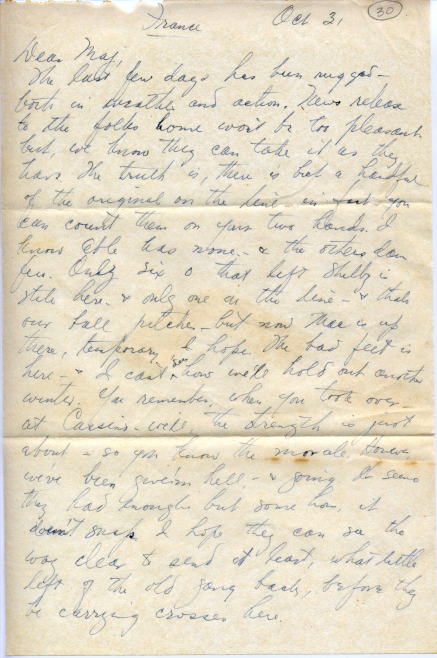 30
France Oct 31
Dear Maj,
The last few days has been rugged -
both in weather and action. News release
to the folks home won't be too pleasant
but, we know they can take it as they
have. The truth is, there is but a handful
of the original on the line - in fact, you
can count them on your two hands. I
know Able has none. - & the others damn
few. Only six o that left Shelby is
still here - & only one on the line - & thats
our ball pitcher - but now Mac is up
there, temporary, I hope. The bad feet is
here - & I can't see how we'll hold out another
winter. You remember, when you took over
at Cassino - well, the strength is just
about - so you know the morale.
we've been given hell - & going. It seems
they had enough but some how, it
doesn't snap. I hope they can see the
way clear to send at least, what little
left of the old gang back, before they
be carrying crosses here.